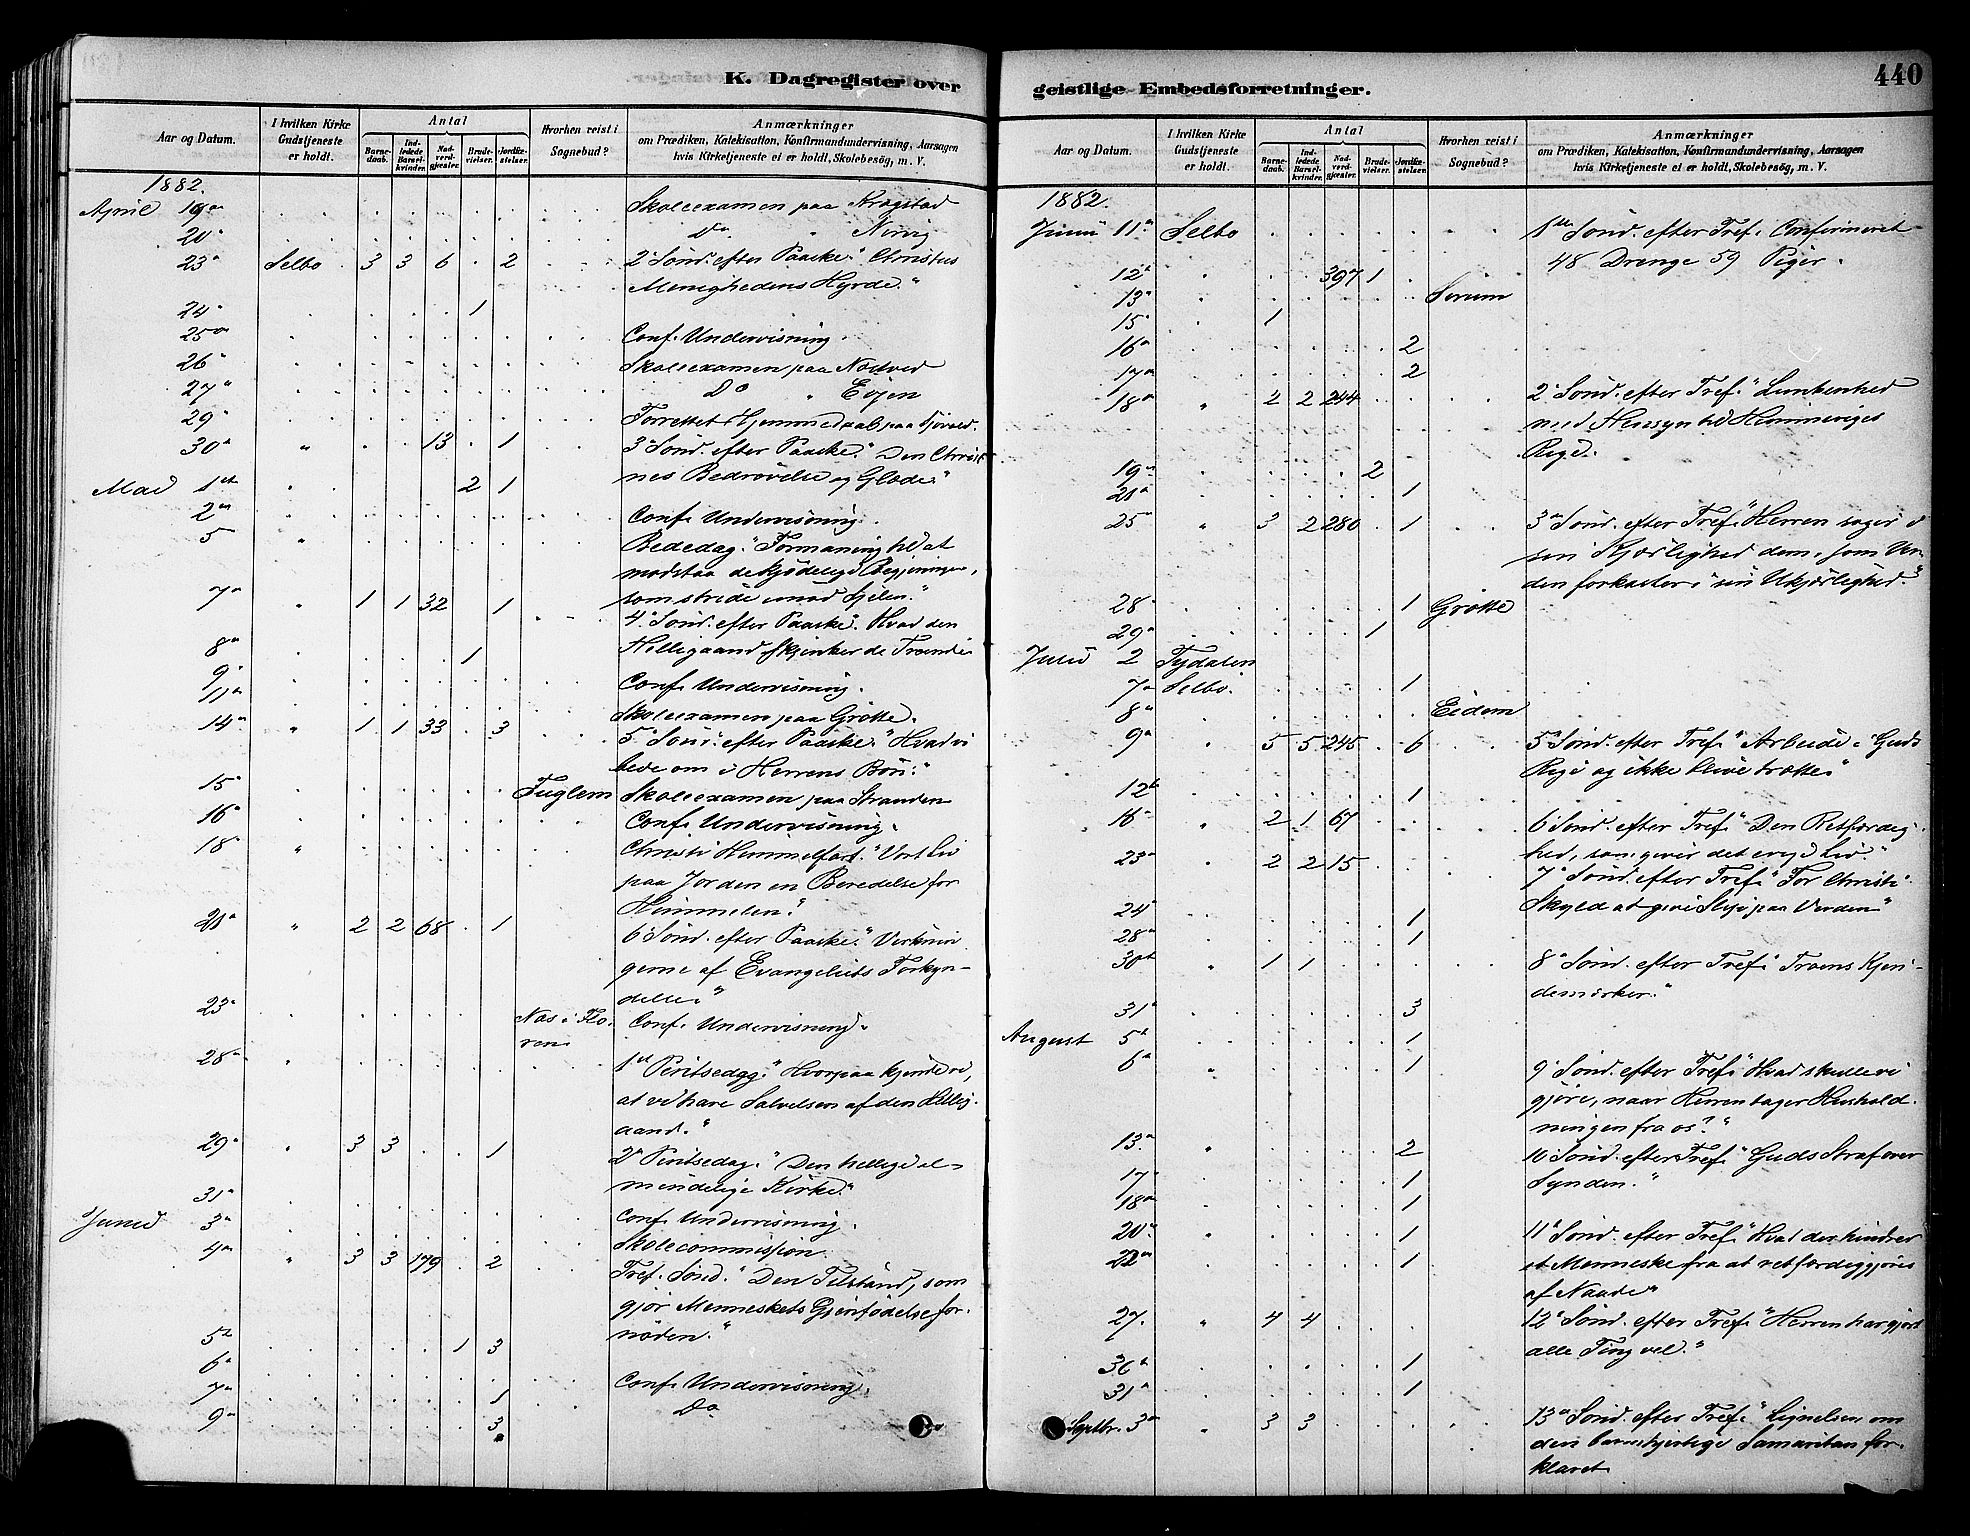 K. Dagregister over
geistlige Embedsforretninger.
440
Aar og Datum.
I hvilken Kirke Gudstjeneste er holdt.
Antal
Barnedaab.
Indledede Barselkvinder.
Nadverdgjæster.
Brudevielser.
Jordfæstelser.
Hvorhen reist i Sognebud?
Anmærkninger
om Prædiken, Katekisation, Konfirmandundervisning, Aarsagen
hvis Kirketjeneste ei er holdt, Skolebesög, m. V.
1882.
April 19de Skoleexamen paa Kragstad
20de Do " Nervig
23de Selbo 3 3 6 2 2 Sönd. efter Paaske. "Christus
Menighedens Hyrde."
24 1
25de Conf. Undervisning.
26 Skoleexamen paa
27 Do " Evjen
29 Forrettet Hjemmedaab paa
30 " 13 1 3 Sönd. efter Paaske. "Den Christ
nes Bedrövelse og Glæde."
Mai 1st 2 1
2den Conf. Undervisning.
5 " Bededag. "Formaning til at
modstaa de kjödelige Begjeringer,
som stride imod Sjelen."
7de " 1 1 32 1 4 Sönd. efter Paaske. "Hvad den
Helligaand skjenker de Troende
8de 1
9 Conf. Undervisning.
11te Skoleexamen paa Grötte.
14de " 1 1 33 3 5 Sönd. efter Paaske. "Hvad vi
bede om i Herrens Bön."
15 Fuglem Skoleexamen paa Stranden
16 Conf. Undervisning.
18 " Christi Himmelfart. "Vort Liv
paa Jorden en Beredelse for
Himmelen."
21 " 2 2 68 1 6 Sönd. efter Paaske. "Virknin
gerne af Evangeliets Forkyn-
delse."
23 Næs i Flo-
ren Conf. Undervisning.
28 1st Pintsedag. "Hvorpaa kjende vi,
at vi have Salvelsen af den Hellig-
aand."
29 " 3 3 1 2 Pintsedag. "Den hellige al-
mindelige Kirke."
31 Conf. Undervisning.
Juni 3 Skolecommission.
4de " 3 3 179 2 Tref. Sönd. "Den Tilstand, som
gjör Menneskets Gjenfödelse for-
nöden."
5 1 3
6
7 1 Conf. Undervisning.
9 3 Do
Aar og Datum.
I hvilken Kirke Gudstjeneste er holdt.
Antal
Barnedaab.
Indledede Barselkvinder.
Nadverdgjæster.
Brudevielser.
Jordfæstelser.
Hvorhen reist i Sognebud?
Anmærkninger
om Prædiken, Katekisation, Konfirmandundervisning, Aarsagen
hvis Kirketjeneste ei er holdt, Skolebesög, m. V.
1882.
Juni 11 Selbo 1ste Sönd. efter Tref. Confirmeret
48 Drenge 59 Piger.
12 " 397 1
13 " Sörum
15 " 1
16 2
17 2
18 " 2 2 244 2 Sönd. efter Tref. "Lunkenhed
med Hensyn til Himmeriges
Rige.
19 2
21 1
25 " 3 2 280 1 3 Sönd. efter Tref. "Herren söger i
sin Kjærlighed dem, som Ver-
den forkaster i sin Ukjærlighed."
28 1 Grötte
29 1
Juli 2 Tydalen
7 Selbo. 1
8 Eidem
9 " 5 5 245 6 5 Sönd. efter Tref. "Arbeide i Guds
Rige og ikke blive trætte."
12 1
16 " 2 1 67 6 Sönd. efter Tref. "Den Retfærdig-
hed, som giver det evige Liv."
23 " 2 2 15 7 Sönd. efter Tref. "For Christi
Skyld at give Slip paa Verden"
24 1
28 1
30 " 1 1 8 Sönd. efter Tref. "Troens Kjen-
demærker."
31 3
August 5 1
6 " 1 9 Sönd. efter Tref. "Hvad skulle vi
gjöre, naar Herren tager Hushold-
ningen fra os?"
13 " 2 10 Sönd. efter Tref. "Guds Straf over
Synden."
17 1
18 1
20 " 1 11 Sönd. efter Tref. "Hvad der hindrer
et Menneske fra at retfærdiggjöres
af Naade"
22 1
27. " 4 4 12 Sönd. efter Tref. "Herren har gjort
alle Ting vel."
30 1
31 1
Septbr. 3 " 3 3 13 Sönd. efter Tref. "Lignelsen om
den barmhjertige Samaritan for-
klaret